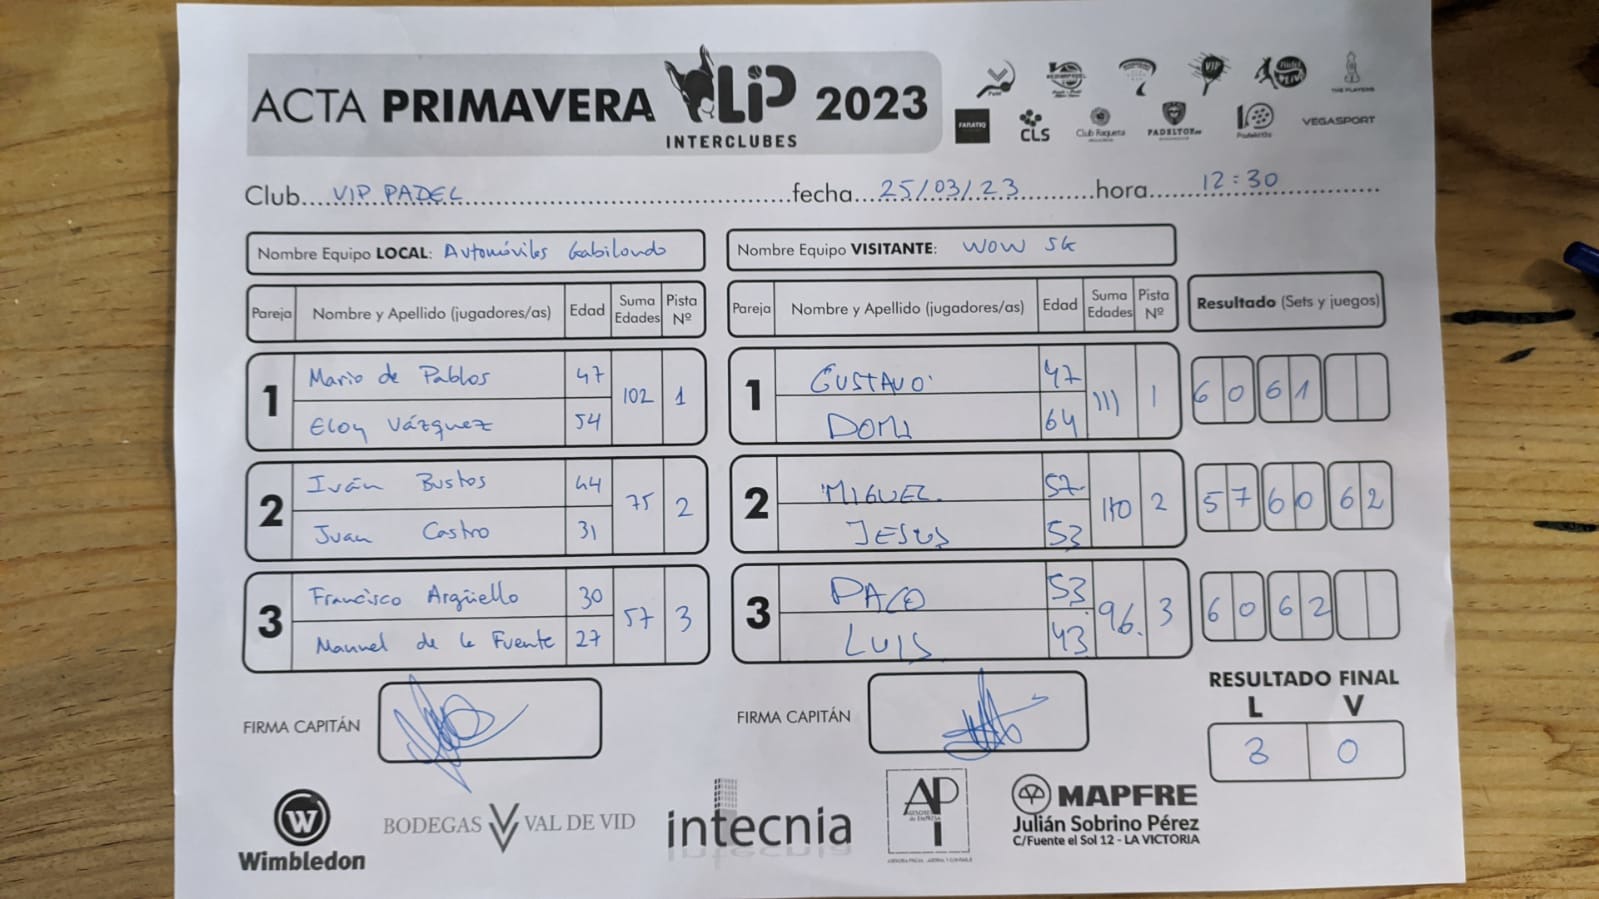 ACTA PRIMAVERA LIP INTERCLUBES 2023
VIP
THE PLAYERS
FANATIQ CLS Club Raqueta PADELTOP.es VEGASPORT
Club VIP PADEL fecha 25/03/23 hora 12:30
Nombre Equipo LOCAL: Automóviles Gabilondo
Nombre Equipo VISITANTE: WOW SG
Pareja Nombre y Apellido (jugadores/as) Edad Suma Edades Pista Nº
Pareja Nombre y Apellido (jugadores/as) Edad Suma Edades Pista Nº
Resultado (Sets y juegos)
1 Mario de Pablos 47 102 1
Eloy Vázquez 54
1 GUSTAVO 47 111 1
DOMI 64
6 0 6 1
2 Iván Bustos 44 75 2
Juan Castro 31
2 MIGUEL 57 110 2
JESUS 53
5 7 6 0 6 2
3 Francisco Argüello 30 57 3
Manuel de la Fuente 27
3 PACO 53 96. 3
LUIS 43
6 0 6 2
FIRMA CAPITÁN
FIRMA CAPITÁN
RESULTADO FINAL
L V
3 0
W Wimbledon
BODEGAS VAL DE VID
intecnia
API
MAPFRE
Julián Sobrino Pérez
C/Fuente el Sol 12 - LA VICTORIA